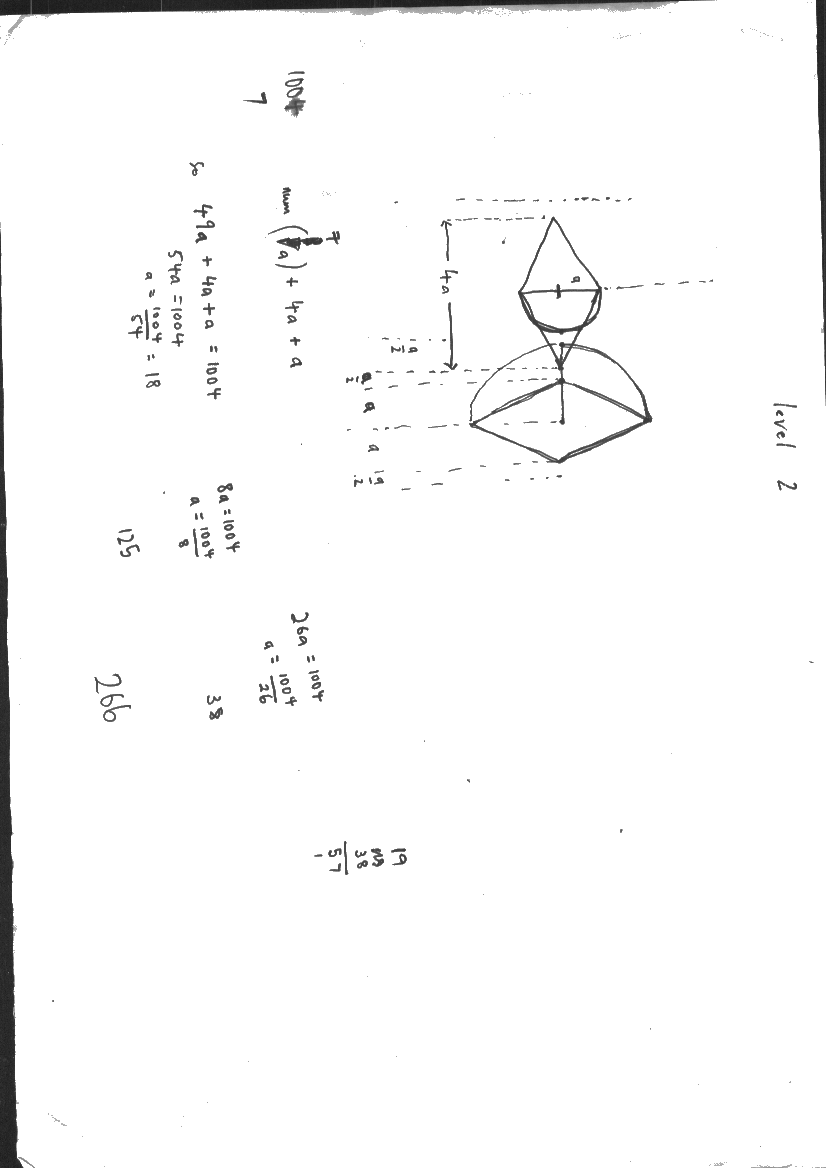 level 2
a
4a
a/2
a/2
a
a
a/2
1004
7
7
num (7a) + 4a + a
So 49a + 4a + a = 1004
54a = 1004
a = 1004/54 = 18
8a = 1004
a = 1004/8
125
26a = 1004
a = 1004/26
38
266
19
38
57